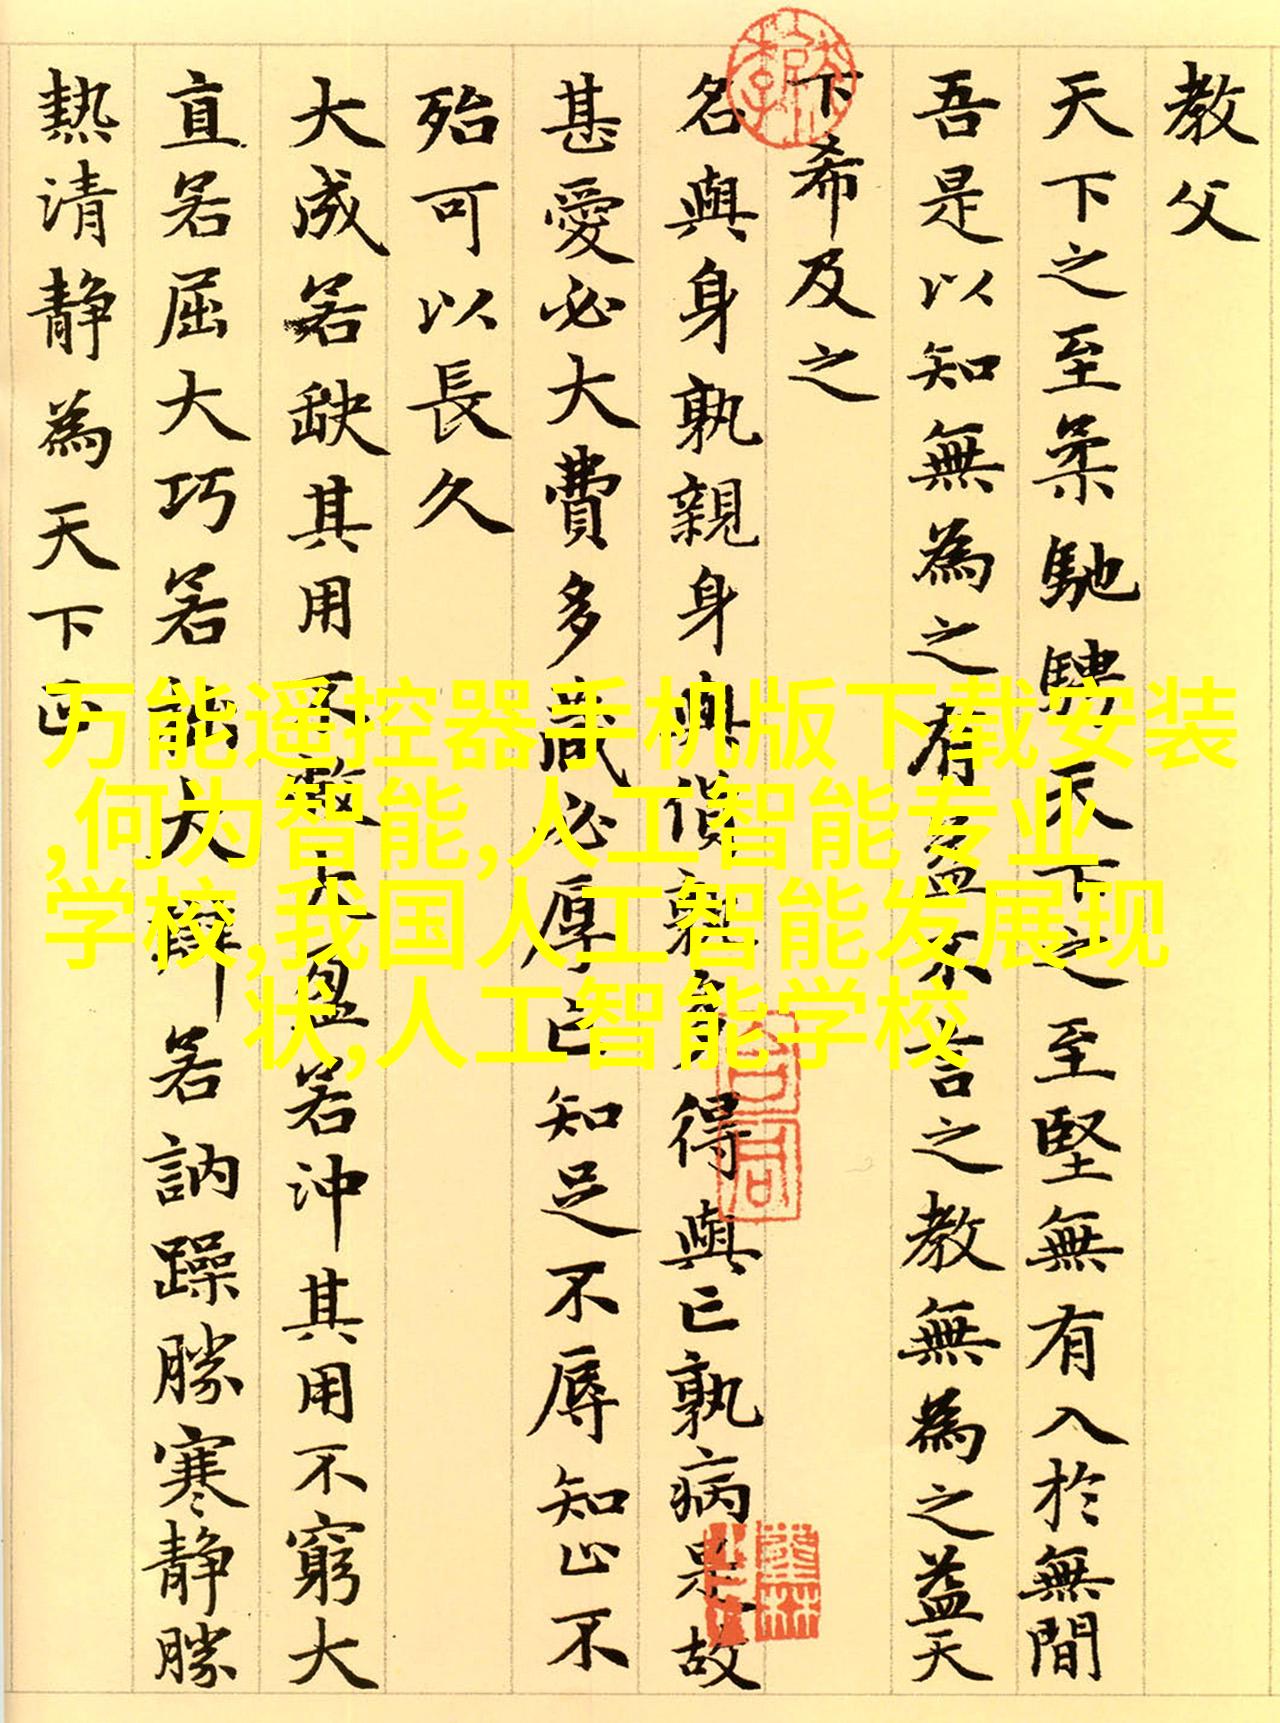 教父
天下之至柔馳騁天下之至堅無有入於無間
吾是以知無為之有益不言之教無為之益天
下希及之
名與身孰親身與貨孰多得與亡孰病是故
甚愛必大費多藏必厚亡知足不辱知止不
殆可以長久
大成若缺其用不敝大盈若沖其用不窮大
直若屈大巧若拙大辯若訥躁勝寒静勝
熱清静為天下正
万能遥控器手机版下载安装
,何为智能,人工智能专业
学校,我国人工智能发展现
状,人工智能学校